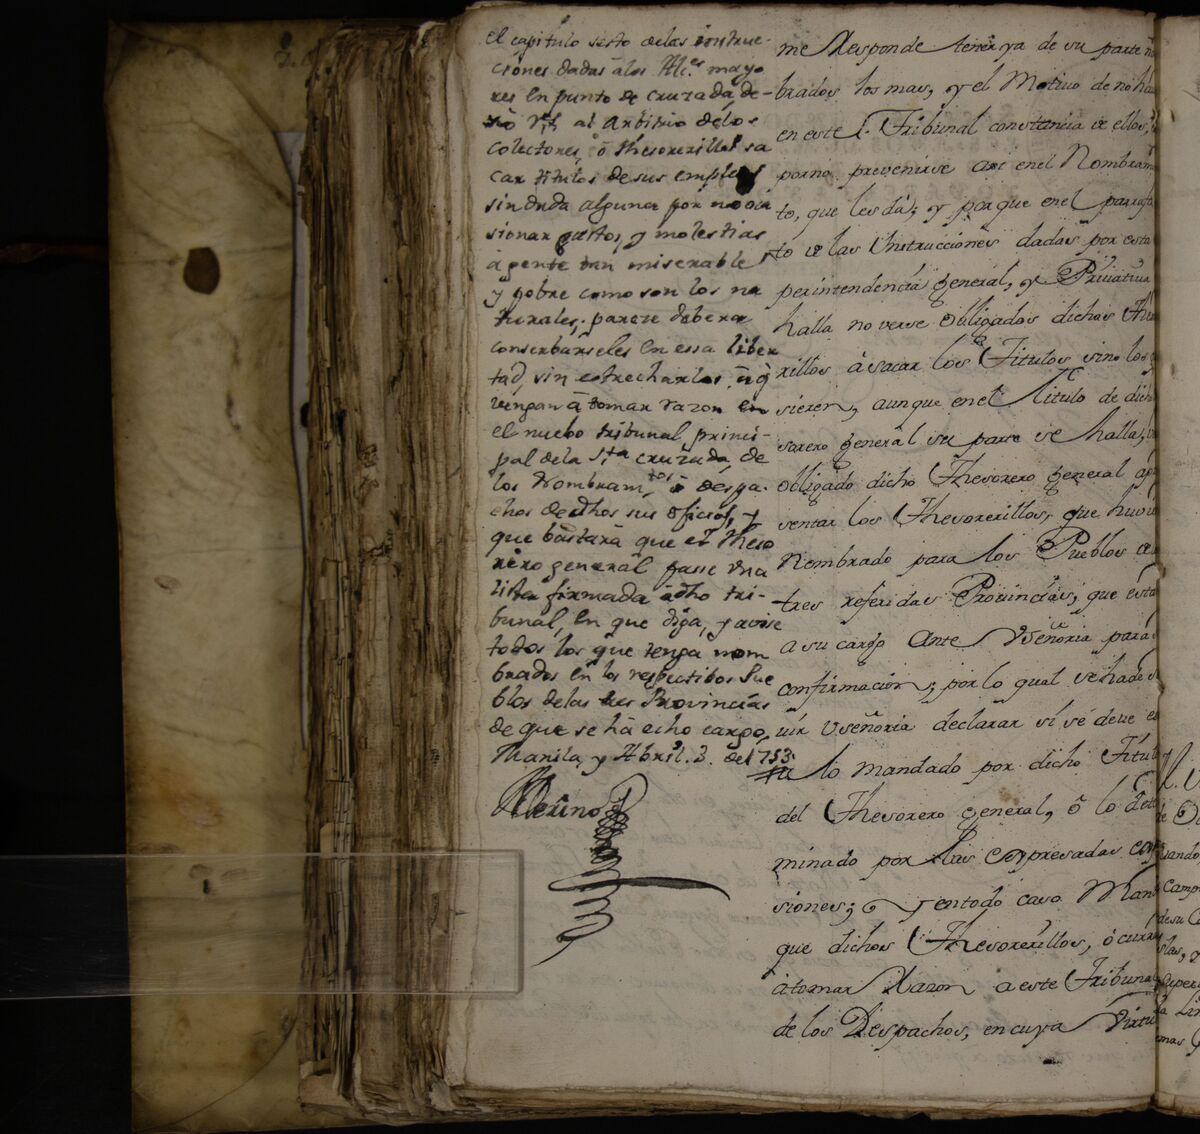 el capitulo sesto de las instruc-
ciones dadas â los Alc.es mayo
res en punto de cruzada, de-
xò al Arbitrio de los
colectores, ò thesorerillos sa
car titulos de sus empleos
sin duda alguna por no oca
sionar gastos, y molestias
â gente tan miserable
y pobre como son los na
turales; parece deberan
conserbarseles en essa liber
tad, sin estrecharlos â q̃
vengan â tomar razon en
el nuebo tribunal princi-
pal de la S.ta cruzada, de
los Nombram.tos ô despa-
chos de dhos sus oficios, y
que bastarà que el theso
rero general passe vna
lista firmada â dho tri-
bunal, en que diga, y avise
todos los que tenga nom
brados en los respectibos Pue
blos de las tres Provincias
de que se hà echo cargo,
Manila y Abril. 3. de 1753.
Merino
me Responde tener ya de su parte
brados los mas, y el Motivo de no há
en este Tribunal constancia de ellos,
por no prevenirse en el Nombram
to, que les dà; y por que en el parrafo
to de las Ynstrucciones dadas por esta
perintendencia general, y Privativa
halla no verse Obligados dichos The
rillos â sacar los Titulos sino los
sieren, aunque en el Titulo de dich
sorero general su parte se halla,
obligado dicho Thesorero general â
sentar los Thesorerillos, que huvie
Nombrado para los Pueblos de
tres referidas Provincias; que está
a su cargo Ante Vseñoria para
confirmacion; por lo qual se ha de
uir Vseñoria declarar si se deve
lo mandado por dicho Titul
del Thesorero general, ô lo dete
minado por las expresadas
siones; y en todo caso Man
que dichos Thesorerillos, ôcurr
â tomar Razon a este Tribunal
de los Despachos, en cuya Virtu